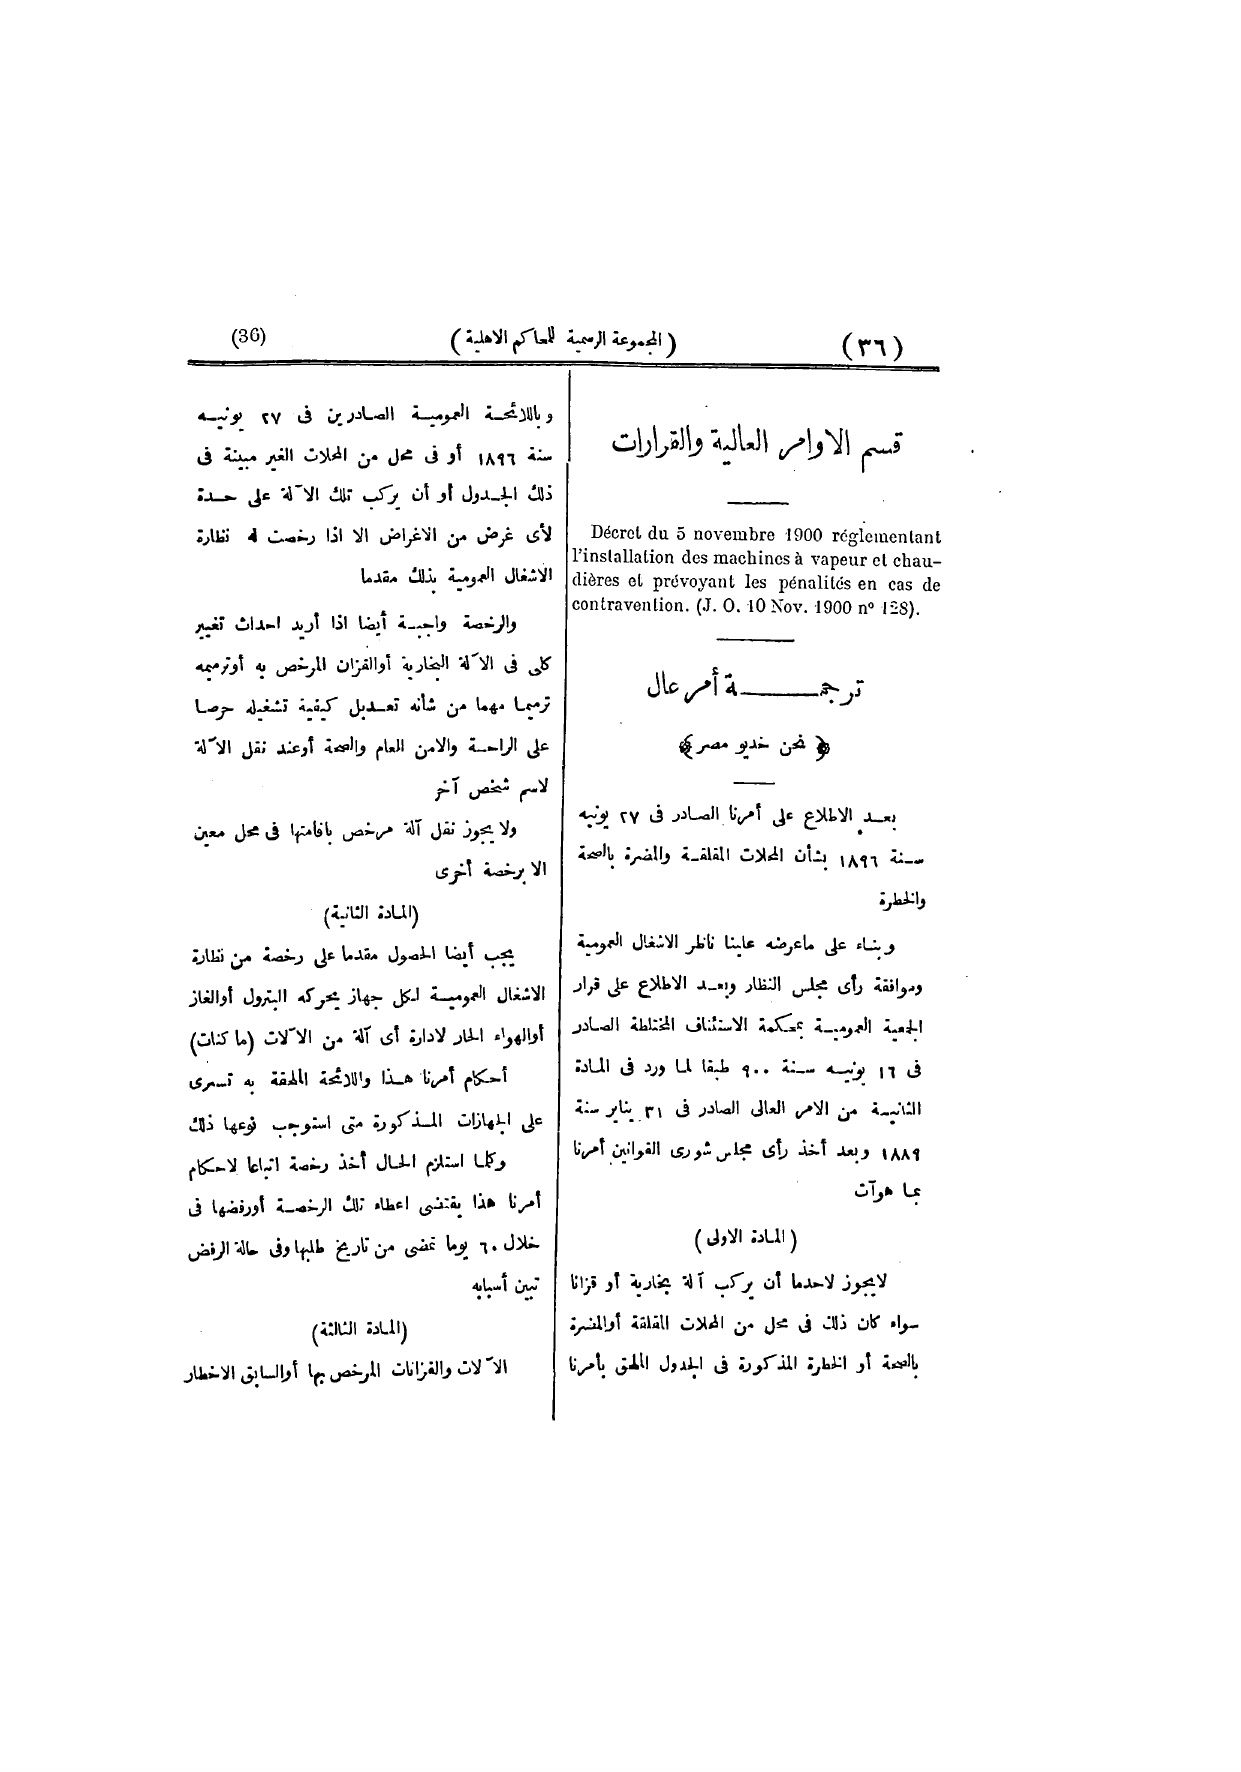 (٣٦) (المجموعة الرسمية للمحاكم الاهلية) (36)
قسم الاوامر العالية والقرارات
Décret du 5 novembre 1900 réglementant
l'installation des machines à vapeur et chau-
dières et prévoyant les pénalités en cas de
contravention. (J. O. 10 Nov. 1900 nº 128).
ترجمة أمر عال
﴿ نحن خديو مصر ﴾
بعد الاطلاع على أمرنا الصادر فى ٢٧ يونيه
سنة ١٨٩٦ بشأن المحلات المقلقة والمضرة بالصحة
والخطرة
وبناء على ماعرضه علينا ناظر الاشغال العمومية
وموافقة رأى مجلس النظار وبعد الاطلاع على قرار
الجمعية العمومية بمحكمة الاستئناف المختلطة الصادر
فى ١٦ يونيه سنة ٩٠٠ طبقا لما ورد فى المادة
الثانية من الامر العالى الصادر فى ٣١ يناير سنة
١٨٨٩ وبعد أخذ رأى مجلس شورى القوانين أمرنا
بما هوآت
(المادة الاولى)
لايجوز لاحدما أن يركب آلة بخارية أو قزانا
سواء كان ذلك فى محل من المحلات المقلقة أوالمضرة
بالصحة أو الخطرة المذكورة فى الجدول الملحق بأمرنا
وباللائحة العمومية الصادرين فى ٢٧ يونيه
سنة ١٨٩٦ أو فى محل من المحلات الغير مبينة فى
ذلك الجدول أو أن يركب تلك الآلة على حدة
لأى غرض من الاغراض الا اذا رخصت له نظارة
الاشغال العمومية بذلك مقدما
والرخصة واجبة أيضا اذا أريد احداث تغيير
كلى فى الآلة البخارية أوالقزان المرخص به أوترميمه
ترميما مهما من شأنه تعديل كيفية تشغيله حرصا
على الراحة والامن العام والصحة أوعند نقل الآلة
لاسم شخص آخر
ولايجوز نقل آلة مرخص باقامتها فى محل معين
الا برخصة أخرى
(المادة الثانية)
يجب أيضا الحصول مقدما على رخصة من نظارة
الاشغال العمومية لكل جهاز يحركه البترول أوالغاز
أوالهواء الحار لادارة أى آلة من الآلات (ماكنات)
أحكام أمرنا هذا واللائحة الملحقة به تسرى
على الجهازات المذكورة متى استوجب نوعها ذلك
وكلما استلزم الحال أخذ رخصة اتباعا لاحكام
أمرنا هذا يقتضى اعطاء تلك الرخصة أورفضها فى
خلال ٦٠ يوما تمضى من تاريخ طلبها وفى حالة الرفض
تبين أسبابه
(المادة الثالثة)
الآلات والقزانات المرخص بها أوالسابق الاخطار